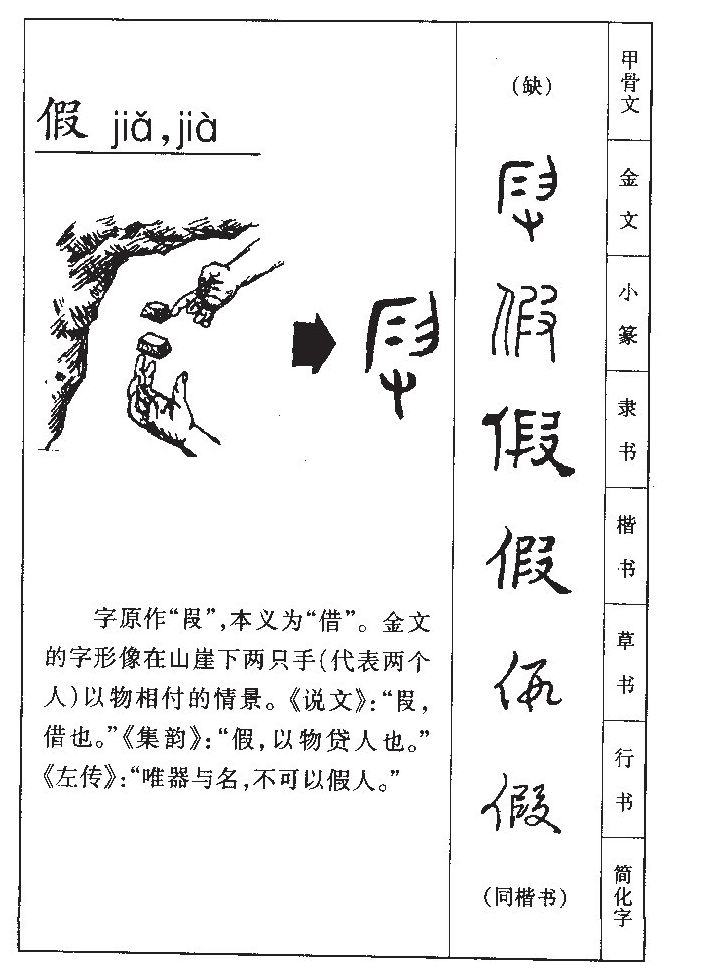 假 jiǎ,jià
字原作“叚”,本义为“借”。金文
的字形像在山崖下两只手(代表两个
人)以物相付的情景。《说文》:“叚,
借也。”《集韵》:“假,以物贷人也。”
《左传》:“唯器与名,不可以假人。”
(缺)
叚
假
假
假
假
假
(同楷书)
甲骨文
金文
小篆
隶书
楷书
草书
行书
简化字